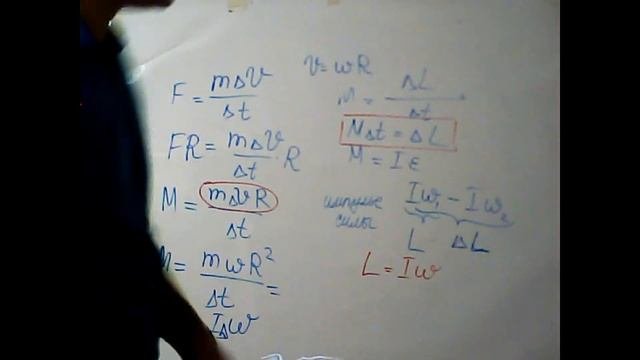 F = mΔV / Δt
FR = mΔV / Δt · R
M = mΔVR / Δt
M = mωR² / Δt =
IΔω
V = ωR
M = ΔL / Δt
MΔt = ΔL
M = Iε
импульс силы
Iω₁ - Iω₂
L ΔL
L = Iω